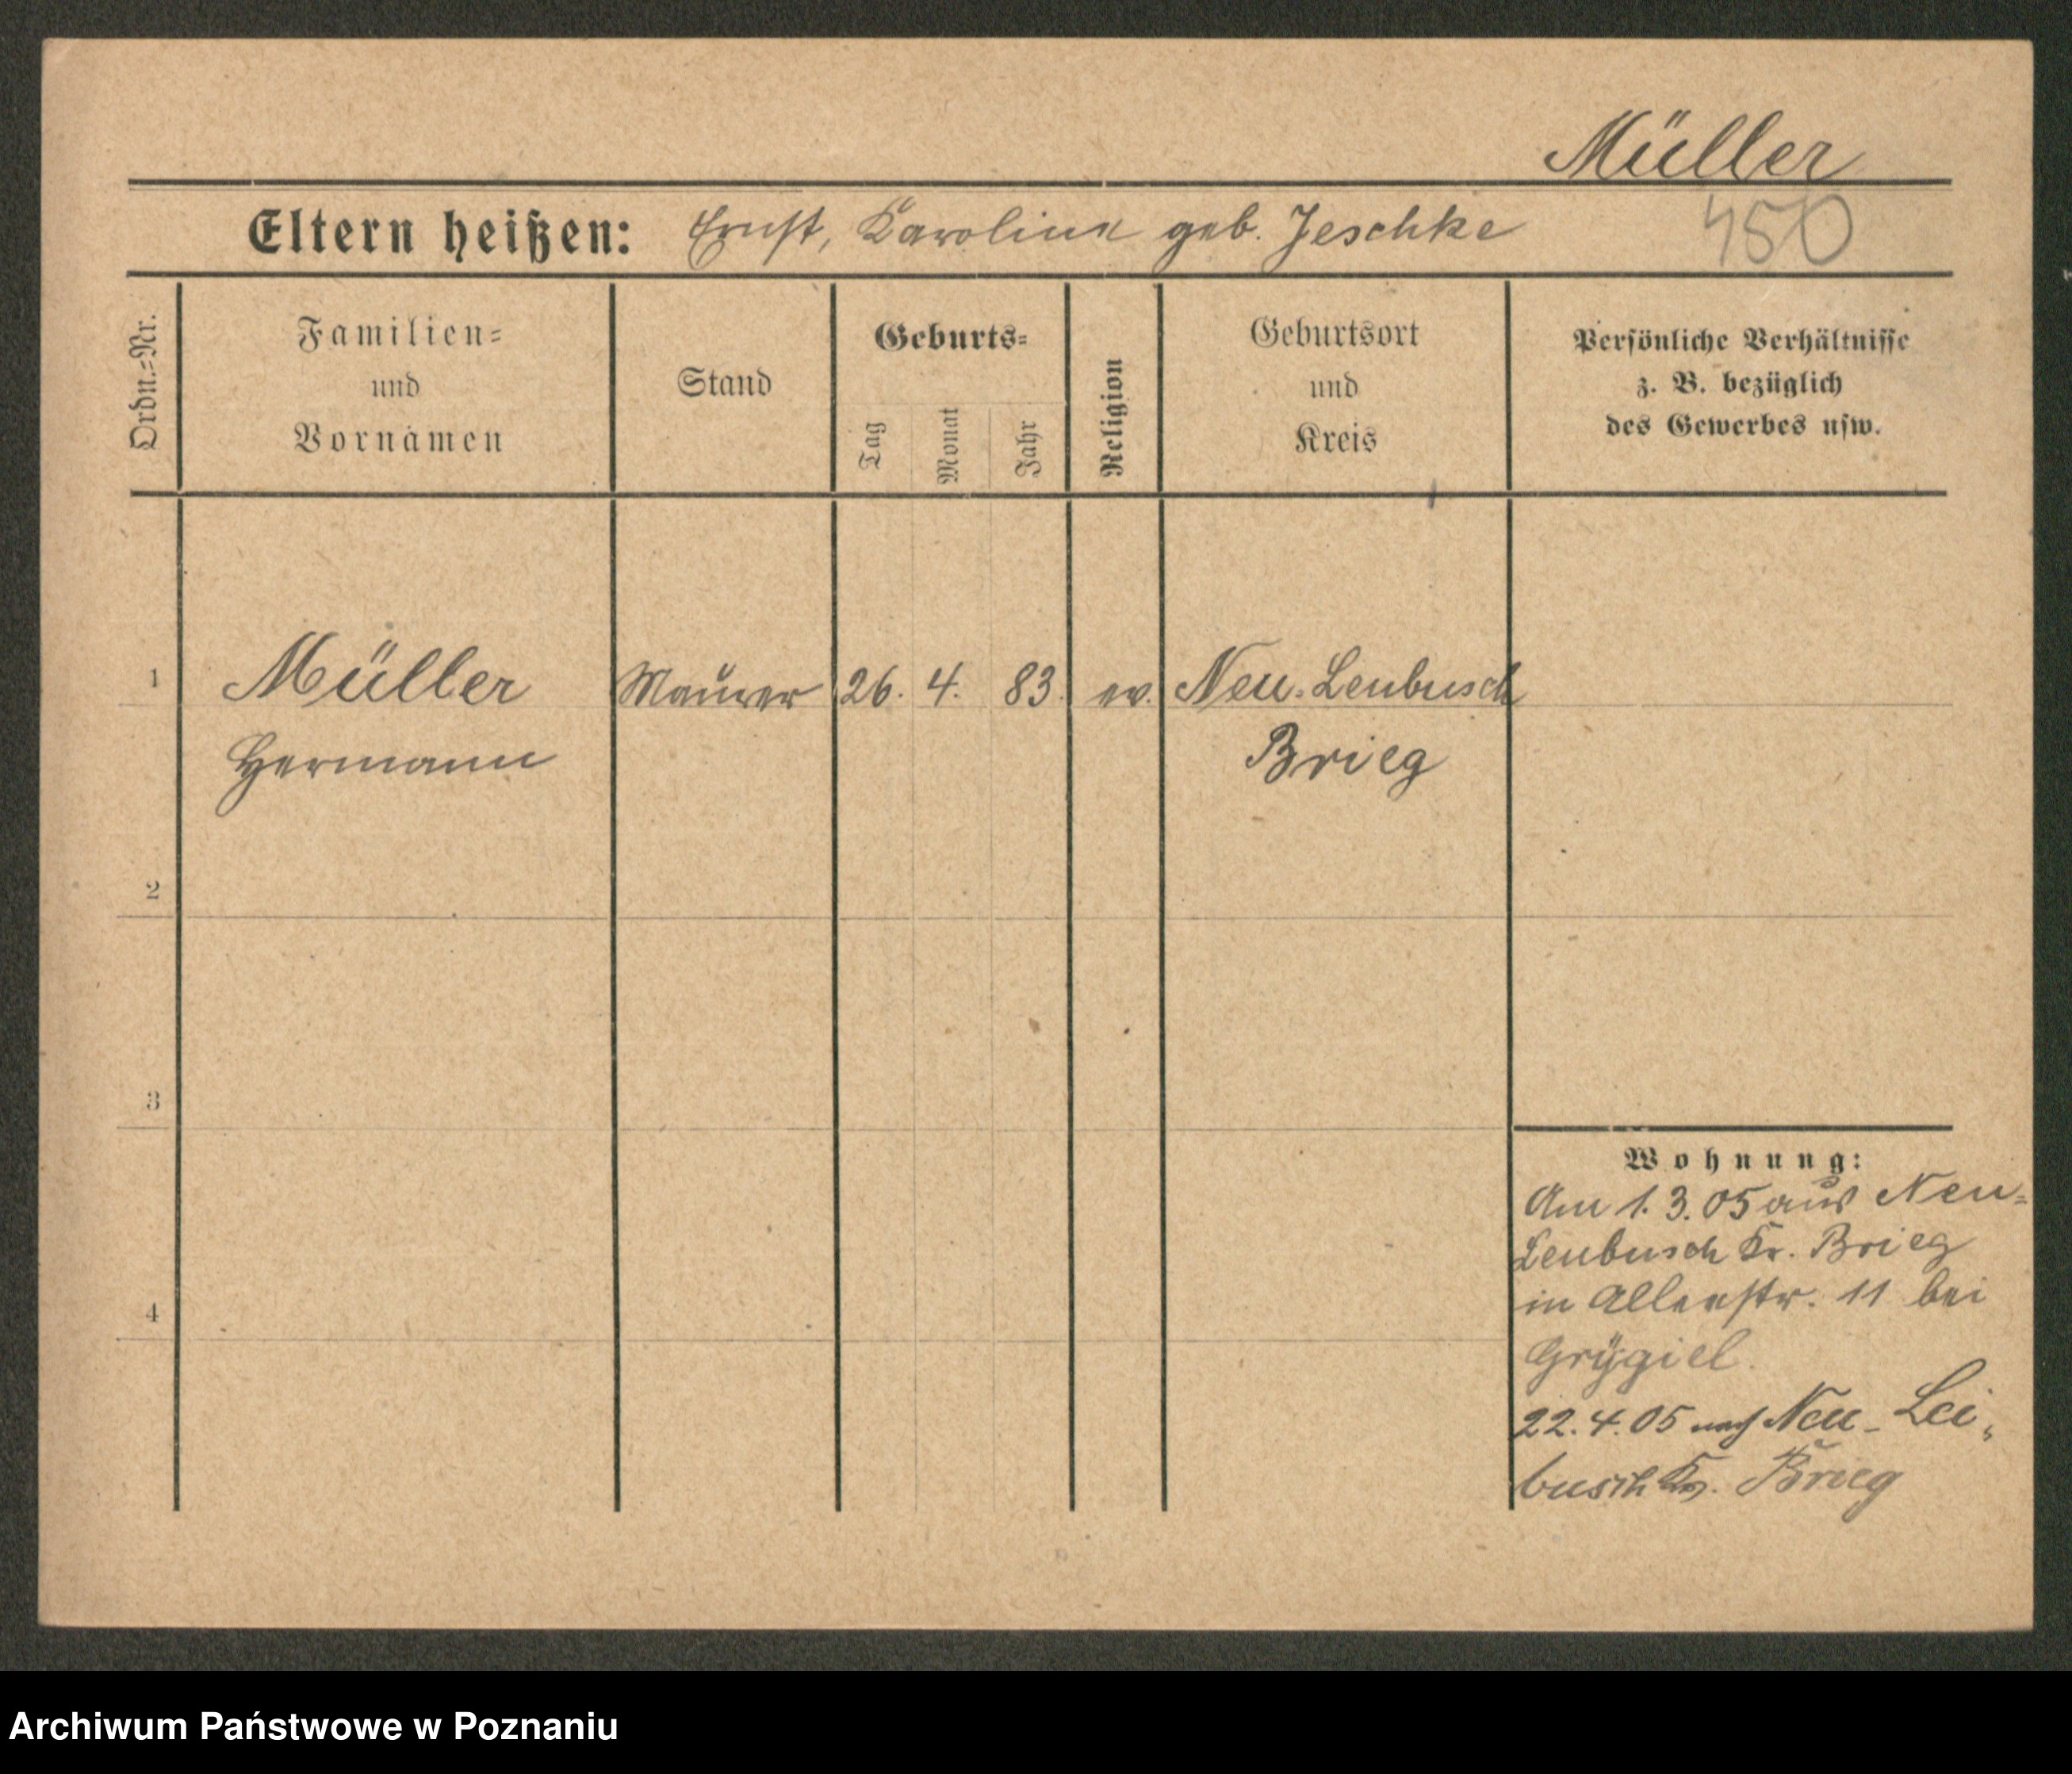 Müller
Eltern heißen: Ernst, Karoline geb. Jeschke 450
Ordn.=Nr.
Familien=
und
Vornamen
Stand
Geburts=
Tag Monat Jahr
Religion
Geburtsort
und
Kreis
Persönliche Verhältnisse
z. B. bezüglich
des Gewerbes usw.
1 Müller Maurer 26. 4. 83. ev. Neu-Leubusch
Hermann Brieg
2
3
Wohnung:
Am 1.3.05 aus Neu=
Leubusch Kr. Brieg
4 in Allerstr. 11 bei
Grÿgiel.
22.4.05 nach Neu-Lei=
busch Kr. Brieg
Archiwum Państwowe w Poznaniu